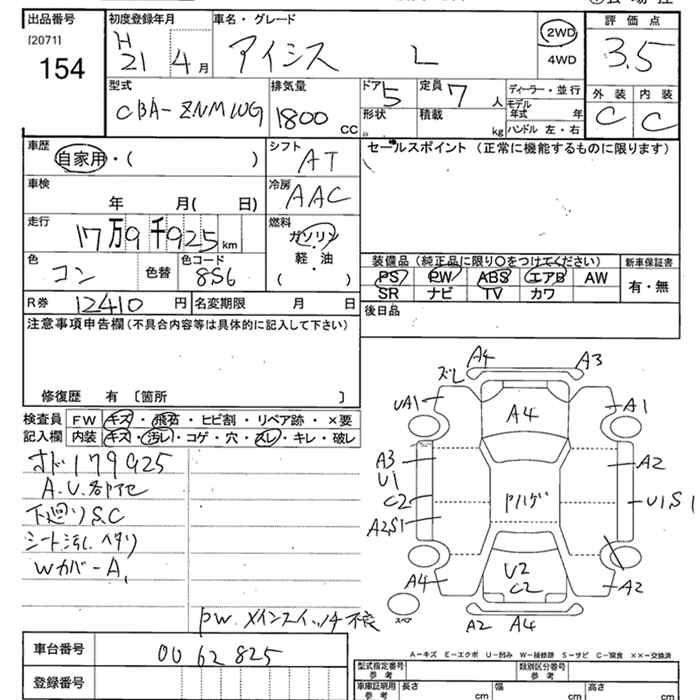 出品番号 初度登録年月 車名・グレード 評価点
[2071]
154
H
21 4月 アイシス L 2WD 4WD 3.5
型式 排気量 ドア 定員 ディーラー・並行 外装 内装
CBA-ZNM10G 1800 CC 5 7人 モデル年式 年 C C
形状 積載 kg ハンドル 左・右
車歴 シフト セールスポイント (正常に機能するものに限ります)
自家用・( ) AT
車検 冷房
年 月( 日) AAC
走行 燃料
17万9千925km ガソリン
・
軽・油
( )
色 色コード 装備品(純正品に限り○をつけてください) 新車保証書
コン 色替 8S6 PS PW ABS エアB AW 有・無
SR ナビ TV カワ
R券 12410円 名変期限 月 日 後日品
注意事項申告欄(不具合内容等は具体的に記入して下さい)
修復歴 有 〔箇所 〕
検査員 FW キズ・飛石・ヒビ割・リペア跡・×要
記入欄 内装 キズ・汚レ・コゲ・穴・スレ・キレ・破レ
オド179925
A.U.各所
下廻りS.C
シート汚レ ヘタリ
Wカバ-A1
PW.メインスイッチ不良
A4 A3
ズレ
UA1 A4 A1
A3 A2
U1
C2 アハゲ U1,S1
A2,S1
A4 U2 A2
C2
スペア A2 A4
A-キズ E-エクボ U-凹み W-補修跡 S-サビ C-腐食 ××-交換済
車台番号 0062825
登録番号
型式指定番号 参考 類別区分番号 参考
車庫証明用 参考 長さ cm 幅 cm 高さ cm